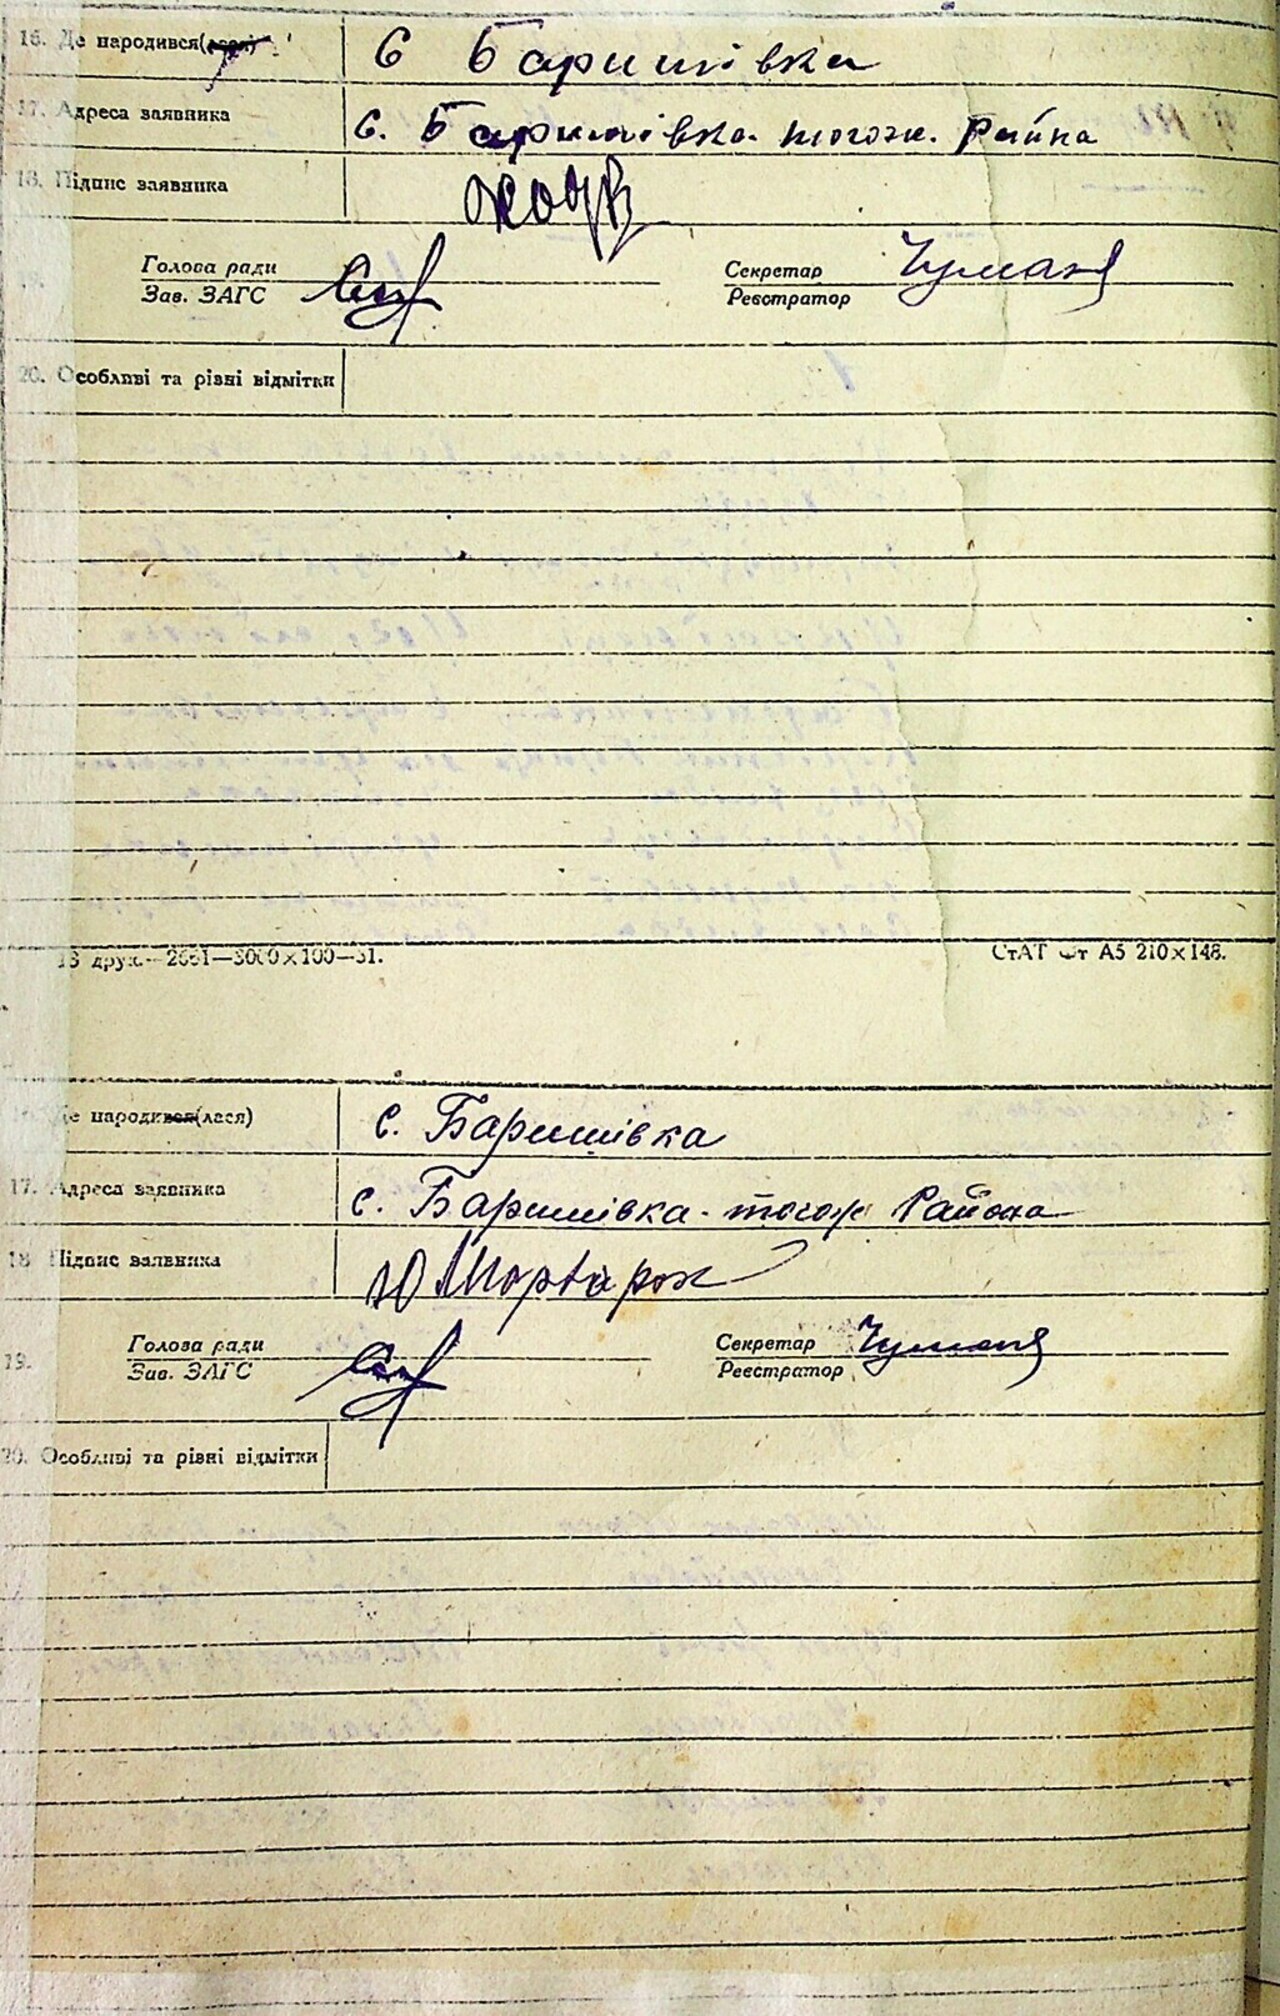 16. Де народився(лася)
С Баришівка
17. Адреса заявника
С. Баришівка тогож. Района
18. Підпис заявника
Голова ради
Зав. ЗАГС
Секретар
Реєстратор
20. Особливі та різні відмітки
СтАТ Фт А5 210×148.
Де народився(лася)
с. Баришівка
17. Адреса заявника
с. Баришівка тогож Района
18 Підпис заявника
19.
Голова ради
Зав. ЗАГС
Секретар
Реєстратор
20. Особливі та різні відмітки